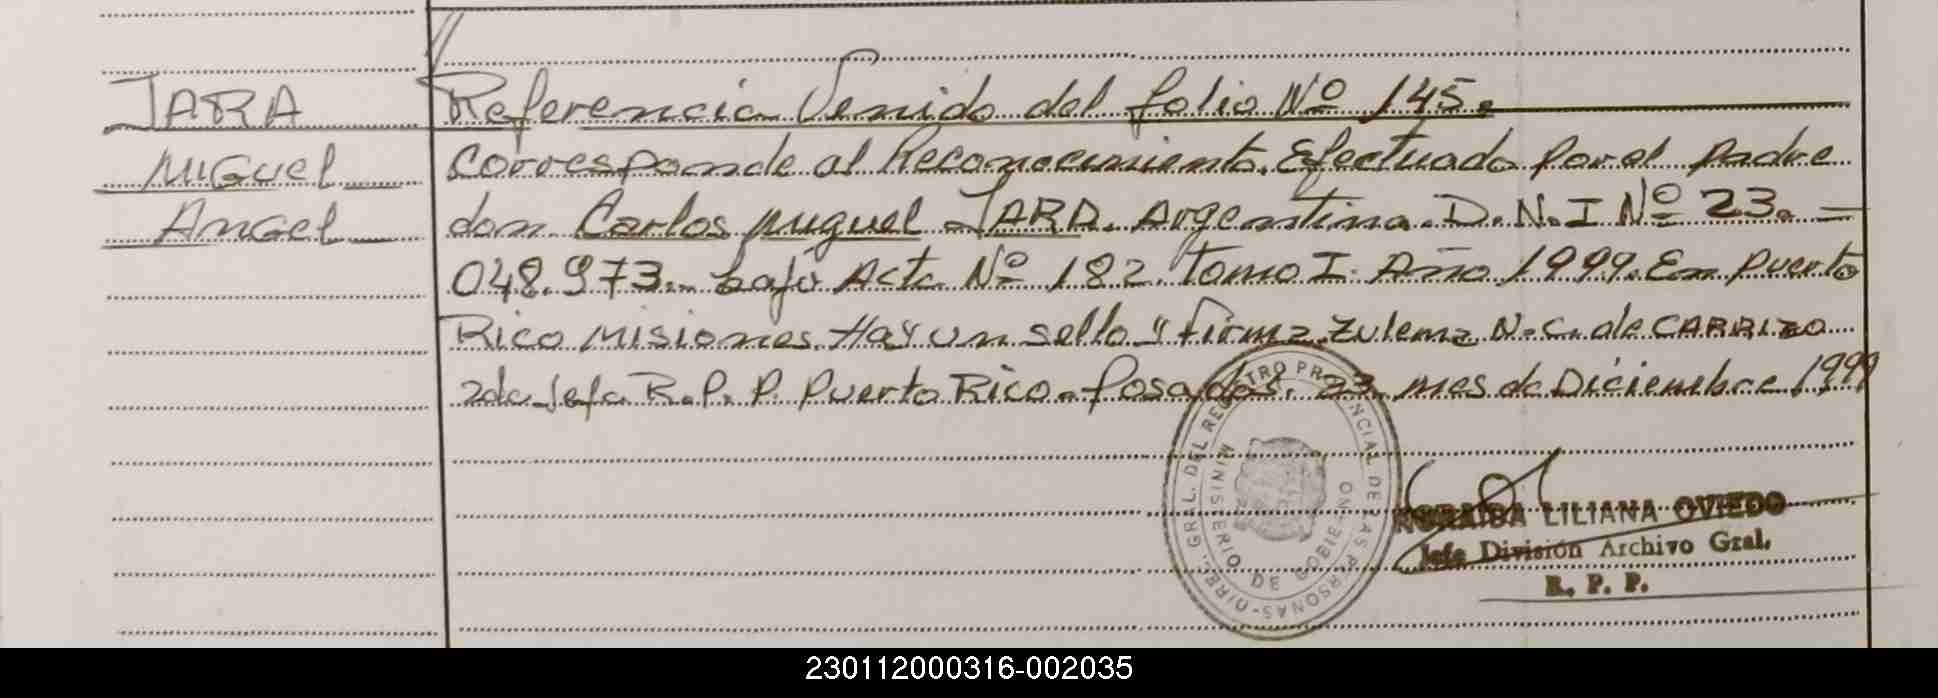 JARA
MiGuel
Angel
Referencia Venido del folio Nº 145.
Corresponde al Reconocimiento. Efectuado Por el Padre
don Carlos Miguel JARA. Argentino. D.N.I Nº 23. —
048.973.- bajo Acta Nº 182. Tomo I. Año 1999. En Puerto
Rico Misiones. Hay un sello y firma. Zulema N.C. de CARRIZO
2da Jefa R.P.P. Puerto Rico - Posadas, 23 mes de Diciembre 1999
DIREC. GRAL. DEL REGISTRO PROVINCIAL DE LAS PERSONAS
MINISTERIO DE GOBIERNO
LILIANA OVIEDO
Jefe División Archivo Gral.
R. P. P.
230112000316-002035